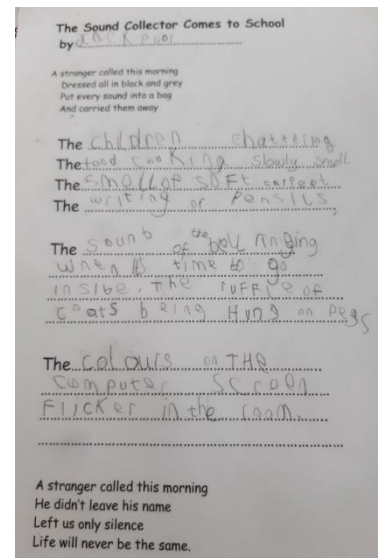 The Sound Collector Comes to School
by
A stranger called this morning
Dressed all in black and grey
Put every sound into a bag
And carried them away
The children chattering
The food cooking slowly smell.
The smelling soft carpet
The writing of pensils,
The sounb of the bell ringing
when its time to go
insibe. The ruffle of
coats being Hung on pegs
The colours on THE
computer screen
Flicker in the room.
A stranger called this morning
He didn't leave his name
Left us only silence
Life will never be the same.